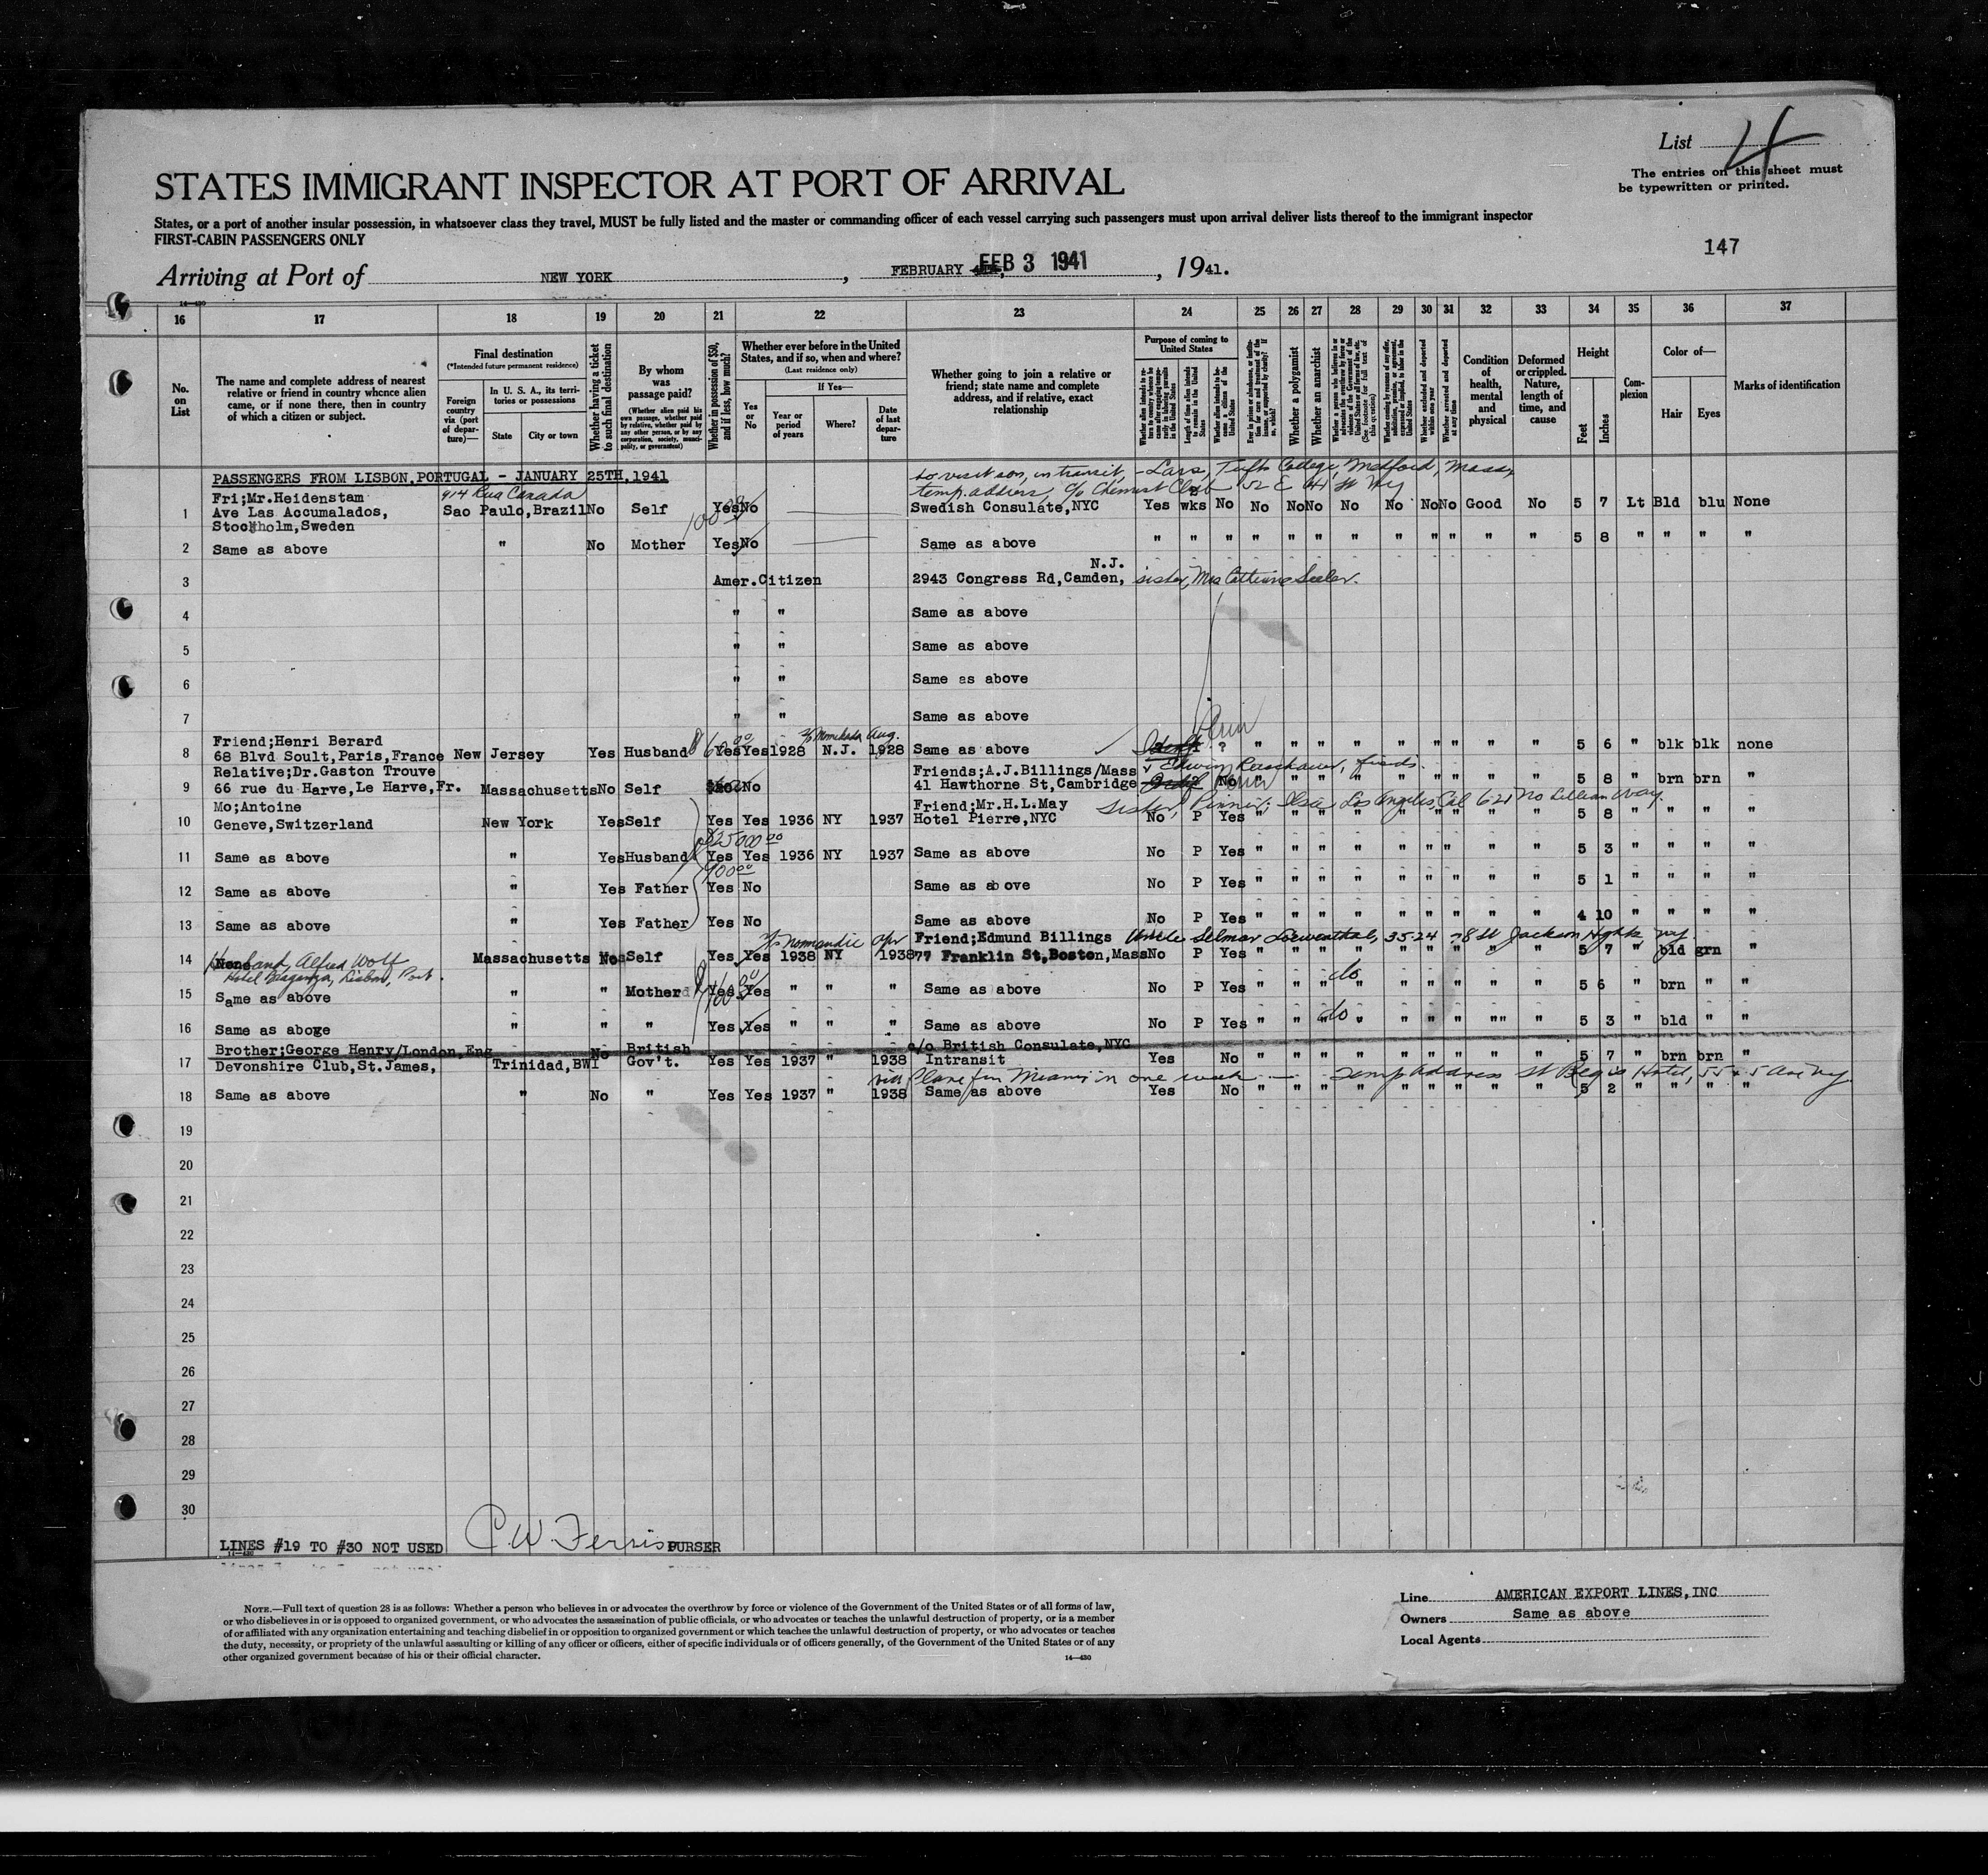 List 4
The entries on this sheet must
be typewritten or printed.
STATES IMMIGRANT INSPECTOR AT PORT OF ARRIVAL
States, or a port of another insular possession, in whatsoever class they travel, MUST be fully listed and the master or commanding officer of each vessel carrying such passengers must upon arrival deliver lists thereof to the immigrant inspector
FIRST-CABIN PASSENGERS ONLY
147
Arriving at Port of NEW YORK, FEBRUARY FEB 3 1941, 1941.
14—430
16 17 18 19 20 21 22 23 24 25 26 27 28 29 30 31 32 33 34 35 36 37
No. on List
The name and complete address of nearest relative or friend in country whence alien came, or if none there, then in country of which a citizen or subject.
Final destination
(*Intended future permanent residence)
Foreign country via (port of departure)—
In U. S. A., its territories or possessions
State
City or town
Whether having a ticket to such final destination
By whom was passage paid?
(Whether alien paid his own passage, whether paid by relative, whether paid by any other person, or by any corporation, society, municipality, or government)
Whether in possession of $50, and if less, how much?
Whether ever before in the United States, and if so, when and where?
(Last residence only)
Yes or No
If Yes—
Year or period of years
Where?
Date of last departure
Whether going to join a relative or friend; state name and complete address, and if relative, exact relationship
Purpose of coming to United States
Length of time alien intends to remain in the United States
Whether alien intends to become a citizen of the United States
Whether a polygamist
Whether an anarchist
Whether excluded and deported within one year
Whether arrested and deported at any time
Condition of health, mental and physical
Deformed or crippled. Nature, length of time, and cause
Height
Feet
Inches
Complexion
Color of—
Hair
Eyes
Marks of identification
PASSENGERS FROM LISBON,PORTUGAL - JANUARY 25TH,1941
to visit son, in transit, - Lars, Tufts College, Medford, Mass,
temp. address, c/o Chemist Club 52 E 41 st NY
Fri;Mr.Heidenstam 914 Rua Canada
1 Ave Las Accumalados, Sao Paulo,Brazil No Self 100 Yes No Swedish Consulate,NYC Yes 2 wks No No No No No No No No Good No 5 7 Lt Bld blu None
Stockholm,Sweden
2 Same as above " No Mother Yes No Same as above " " " " " " " " " " " " 5 8 " " " "
N.J.
3 Amer.Citizen 2943 Congress Rd,Camden, sister, Mrs Catherine Seeler.
4 " " Same as above
5 " " Same as above
6 " " Same as above
7 " " Same as above
Friend;Henri Berard
8 68 Blvd Soult,Paris,France New Jersey Yes Husband $60.00 Yes Yes 1928 N.J. Aug. 1928 Same as above ? " " " " " " " " " 5 6 " blk blk none
Relative;Dr.Gaston Trouve Friends;A.J.Billings/Mass
9 66 rue du Harve,Le Harve,Fr. Massachusetts No Self No 41 Hawthorne St,Cambridge No " " " " " " " " " 5 8 " brn brn "
Mo;Antoine Friend;Mr.H.L.May sister, Pinner; Ilsa Los Angeles, Cal 621 No Lillian Way.
10 Geneve,Switzerland New York Yes Self Yes Yes 1936 NY 1937 Hotel Pierre,NYC No P Yes " " " " " " " " " 5 8 " " " "
$25000 00
11 Same as above " Yes Husband Yes Yes 1936 NY 1937 Same as above No P Yes " " " " " " " " " 5 3 " " " "
12 Same as above " Yes Father Yes No Same as above No P Yes " " " " " " " " " 5 1 " " " "
13 Same as above " Yes Father Yes No Same as above No P Yes " " " " " " " " " 4 10 " " " "
s/s Normandie Apr Friend;Edmund Billings Uncle Selmar Loewenthal, 3524 78 St Jackson Hghts, NY.
14 Husband, Alfred Wolf Massachusetts Self Yes Yes 1938 NY 1938 77 Franklin St,Boston,Mass No P Yes " " " " " " " " " 5 7 " bld grn "
Hotel Braganza, Lisbon, Port.
15 Same as above " " Mother Yes Yes " " " Same as above No P Yes " " " do " " " " " " 5 6 " brn " "
16 Same as above " " " Yes Yes " " " Same as above No P Yes " " " do " " " " " " 5 3 " bld " "
Brother;George Henry/London,Eng British c/o British Consulate,NYC
17 Devonshire Club,St.James, Trinidad,BWI No Gov't. Yes Yes 1937 " 1938 Intransit Yes No " " " " " " " " " 5 7 " brn brn "
via Plane fm Miami in one week — Temp address St Regis Hotel, 55 & 5 Ave NY.
18 Same as above " No " Yes Yes 1937 " 1938 Same as above Yes No " " " " " " " " " 5 2 " " " "
19
20
21
22
23
24
25
26
27
28
29
30
LINES #19 TO #30 NOT USED C.W. Ferris PURSER
NOTE.—Full text of question 28 is as follows: Whether a person who believes in or advocates the overthrow by force or violence of the Government of the United States or of all forms of law,
or who disbelieves in or is opposed to organized government, or who advocates the assassination of public officials, or who advocates or teaches the unlawful destruction of property, or is a member
of or affiliated with any organization entertaining and teaching disbelief in or opposition to organized government or which teaches the unlawful destruction of property, or who advocates or teaches
the duty, necessity, or propriety of the unlawful assaulting or killing of any officer or officers, either of specific individuals or of officers generally, of the Government of the United States or of any
other organized government because of his or their official character.
14—430
Line AMERICAN EXPORT LINES,INC
Owners Same as above
Local Agents